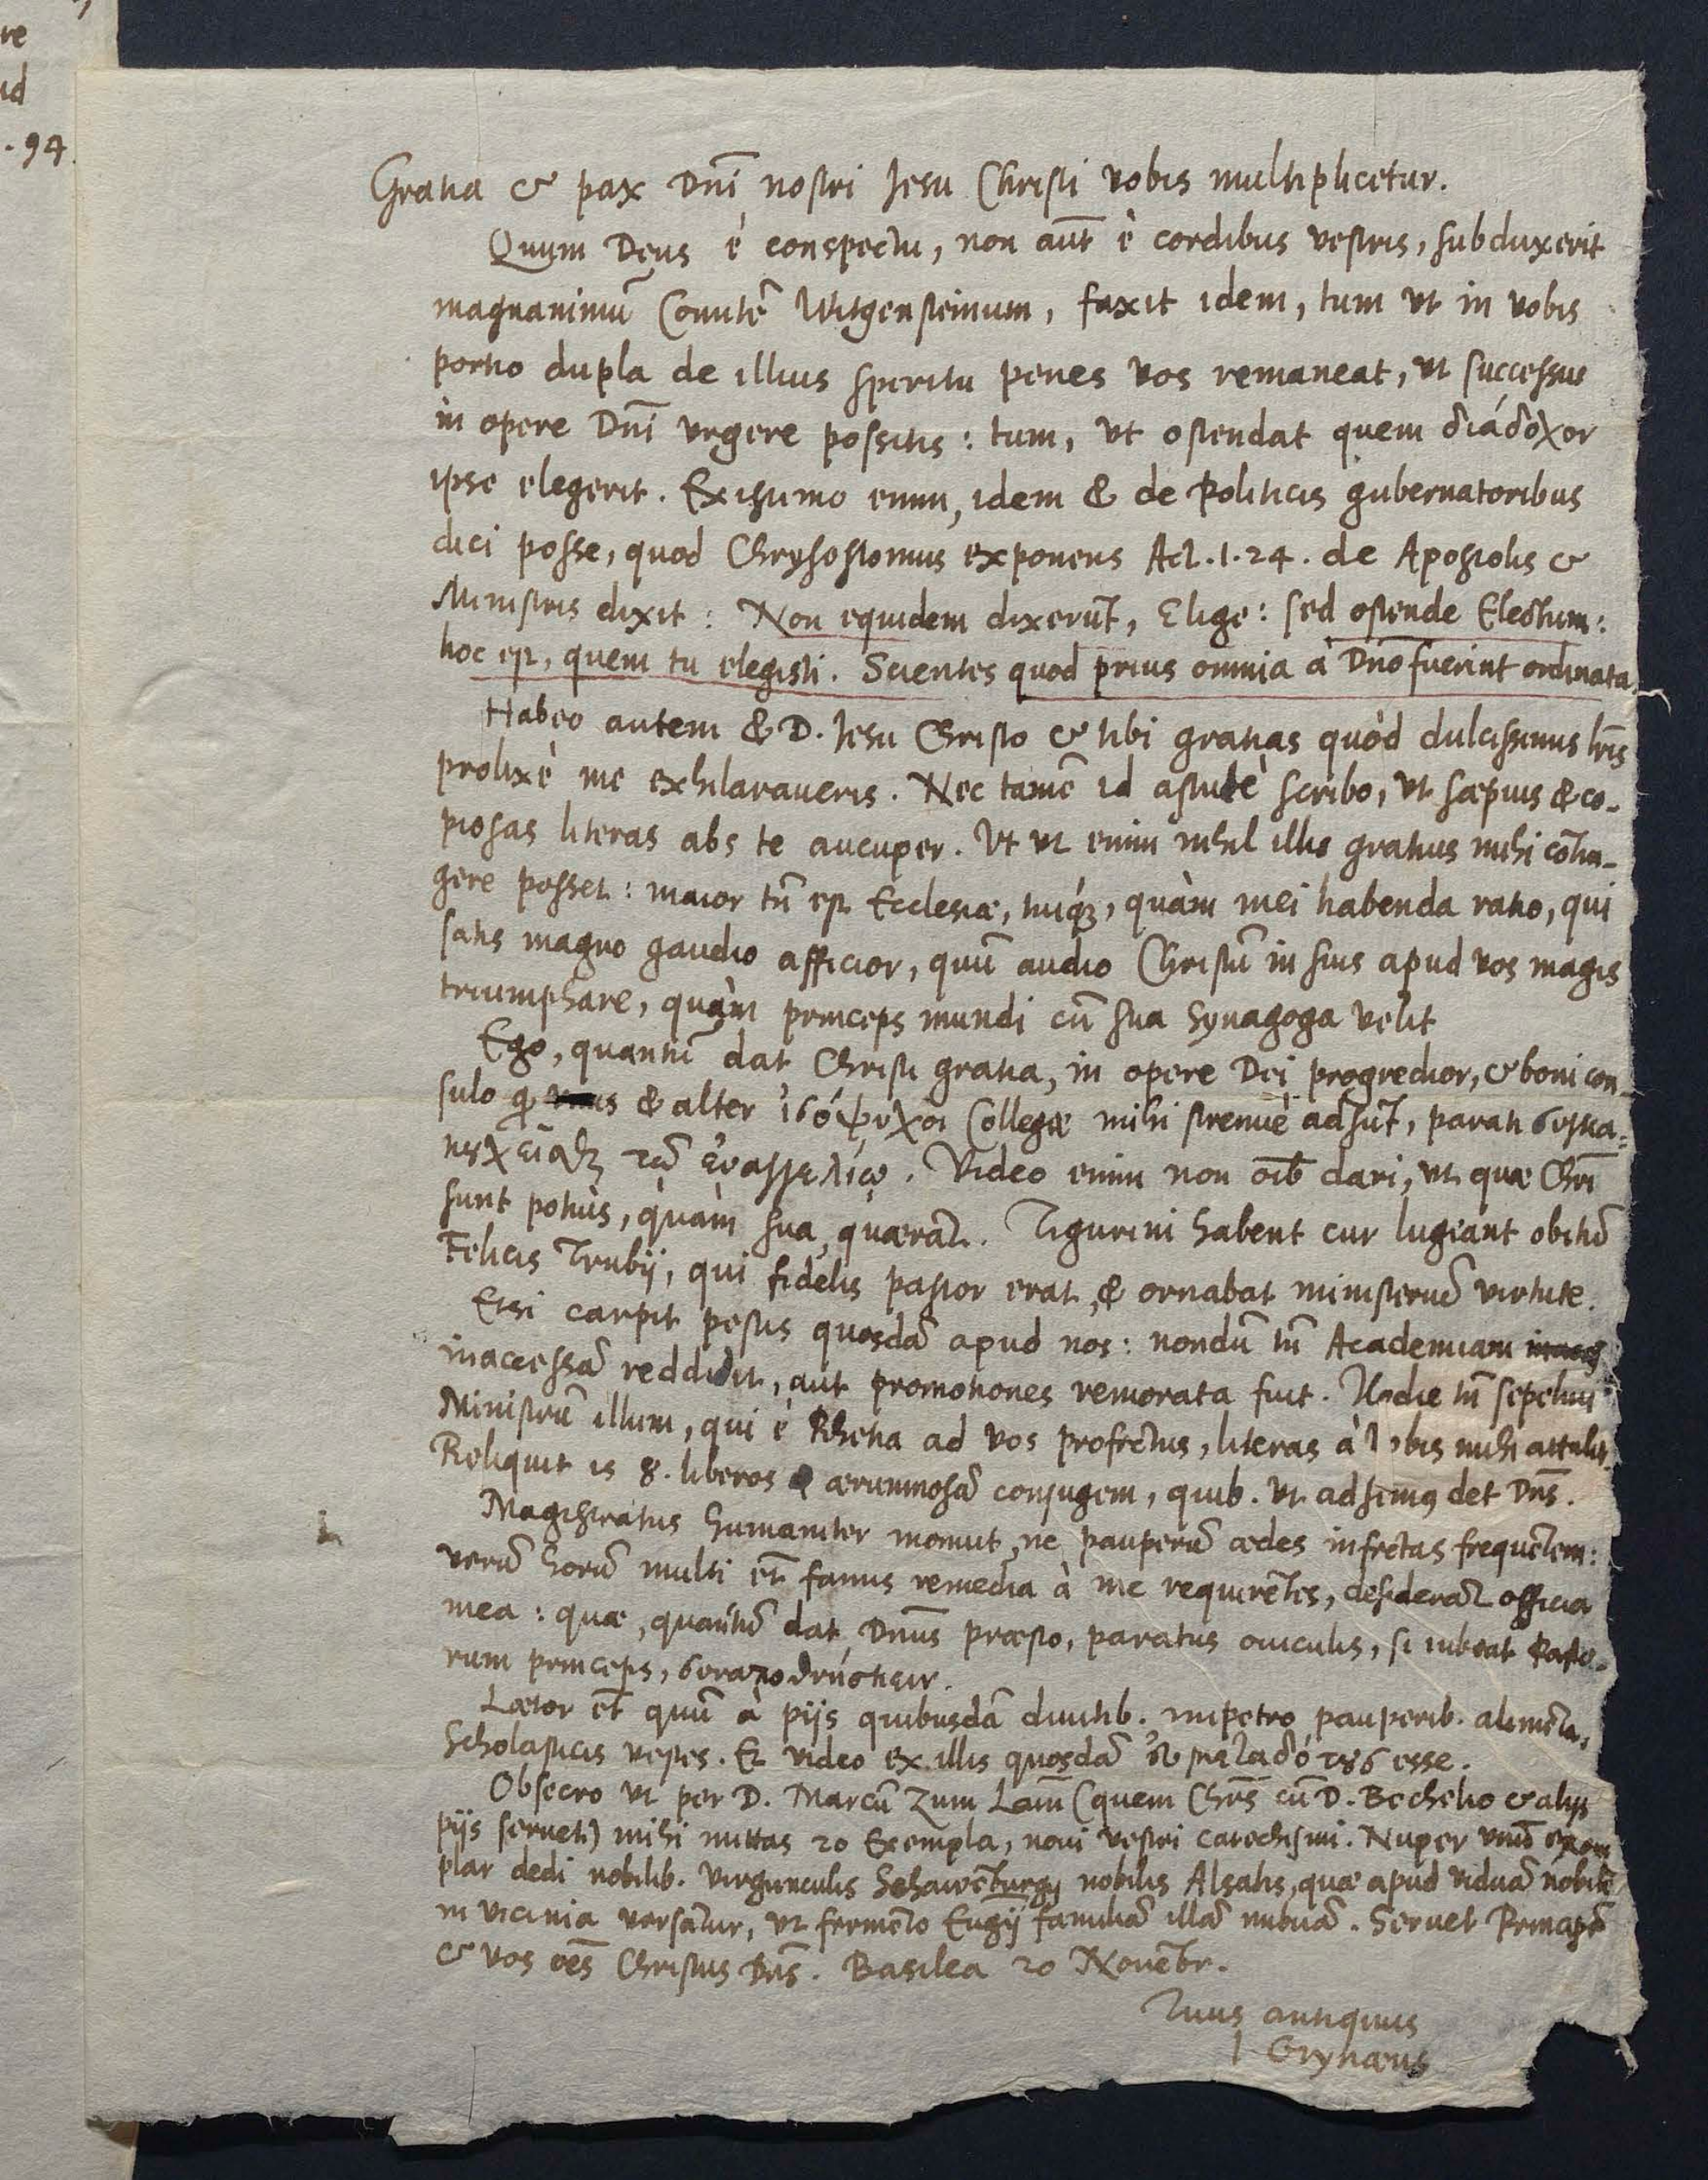 re
id
. 94.
Gratia & pax Dnī nostri Jesu Christi vobis multiplicetur.
Quum Deus è conspectu, non aūt è cordibus vestris, subduxerit
magnanimū Comitē Witgensteinium, faxit idem, tum ut in vobis
portio dupla de illius spiritu penes vos remaneat, ut successus
in opere Dnī urgere possitis: tum, ut ostendat quem διάδοχον
ipse elegerit. Existimo enim, idem & de Politicis gubernatoribus
dici posse, quod Chrysostomus exponens Act. 1. 24. de Apostolis &
Ministris dixit: Non equidem dixerūt, Elige: sed ostende Electum:
hoc est, quem tu elegisti. Scientes quod prius omnia à Dn̄o fuerint ordinata.
Habeo autem & D. Jesu Christo & tibi gratias quòd dulcissimis lr̄is
prolixè me exhilaraueris. Nec tamē id astutè scribo, ut sæpius & co-
piosas literas abs te aucuper. Ut ut enim nihil illis gratius mihi cōtin-
gere posset: maior tn̄ est Ecclesiæ, tuíq;, quàm mei habenda ratio, qui
satis magno gaudio afficior, quū audio Christū in suis apud vos magis
triumphare, quàm princeps mundi cū sua Synagoga velit
Ego, quantū dat Christi gratia, in opere Dei progredior, & boni con-
sulo qd & alter ἰσόψυχοι Collegæ mihi strenuè adsūt, parati συγκα-
κουχεῖσθαι τῷ ἐυαγγελίῳ. Video enim non oīb dari, ut quæ Chrī
sunt potiùs, quàm sua, quærāt. Tigurini habent cur lugeant obitū
Felicis Trubij, qui fidelis pastor erat, & ornabat ministeriū virtute.
Etsi carpit pestis quosdā apud nos: nondū tn̄ Academiam
inaccessā reddidit, aut promotiones remorata fuit. Hodie tn̄ sepelivi
Ministrū illum, qui è Rhetia ad vos profectus, literas à vobis mihi attulit.
Reliquit is 8. liberos & ærumnosā conjugem, quib. ut adsimus det Dn̄s.
Magistratus humaniter monuit, ne pauperū ædes infectas frequētem:
verū horū multi et̄ famis remedia à me requirētes, desiderāt officia
mea: quæ, quantū dat Dnūs præsto, paratus ouiculis, si iubeat Pasto-
rum princeps, συναποθνήσκειν.
Lætor et̄ quū à pijs quibusdā divitib. impetro pauperib. alimēta,
Scholasticis vestes. Et video ex illis quosdā ἐυμεταδότους esse.
Obsecro ut per D. Marcū Zum Lam̄ (quem Chr̄s cū D. Bechelio & alijs
pijs servet) mihi mittas 20 Exempla, noui vestri catechismi. Nuper unū exem
plar dedi nobilib. virgunculis Schawēburgij nobilis Alsatis, quæ apud viduā nobilē
in vicinia versātur, ut fermēto Eug̅ij familiā illā imbuā. Servet Principē
& vos oēs Christus Dn̄s. Basilea 20 Novēbr.
Tuus antiquus
I Grynæus